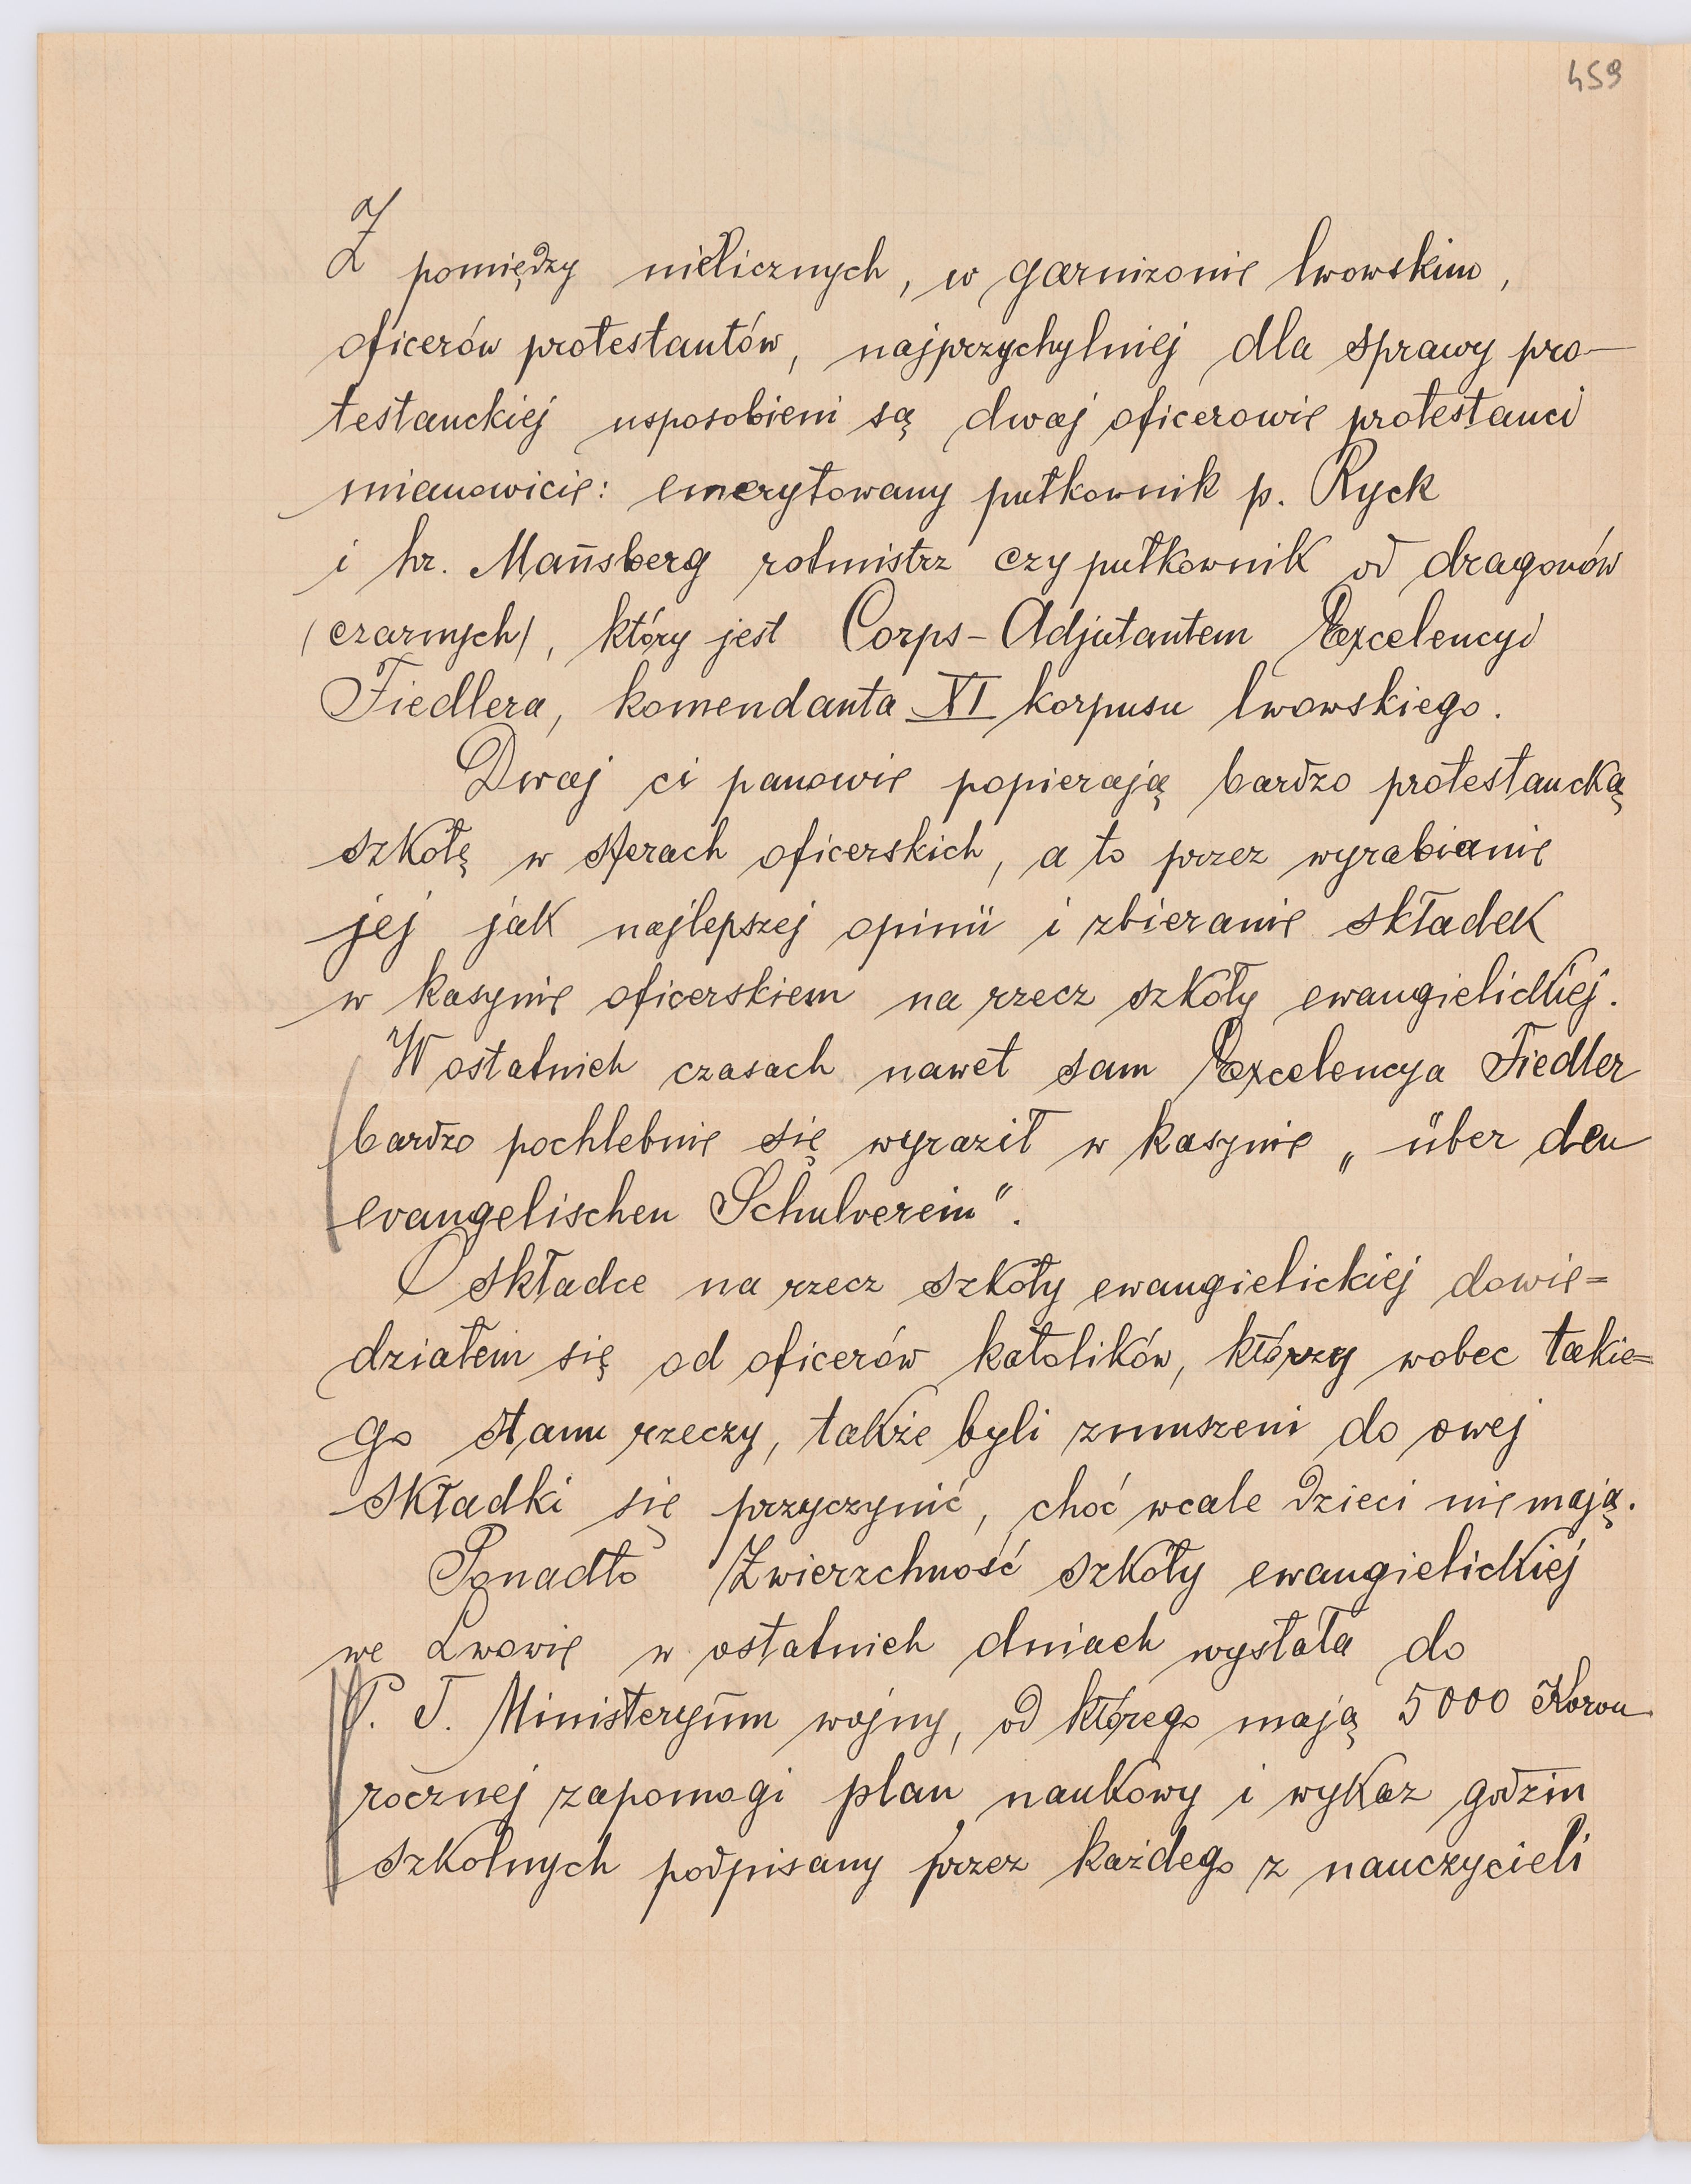 459
Z pomiędzy nielicznych, w garnizonie lwowskim,
oficerów protestantów, najprzychylniej dla sprawy pro-
testanckiej usposobieni są dwaj oficerowie protestanci
mianowicie: emerytowany pułkownik p. Ryck
i hr. Mañsberg rotmistrz czy pułkownik od dragonów
(czarnych), który jest Corps-Adjutantem Excelencyi
Fiedlera, komendanta XI korpusu lwowskiego.
Dwaj ci panowie popierają bardzo protestancką
szkołę w sferach oficerskich, a to przez wyrabianie
jej jak najlepszej opinii i zbieranie składek
w kasynie oficerskiem na rzecz szkoły ewangielickiej.
W ostatnich czasach nawet sam Excelencya Fiedler
bardzo pochlebnie się wyraził w kasynie „über den
evangelischen Schulverein".
O składce na rzecz szkoły ewangielickiej dowie=
działem się od oficerów katolików, którzy wobec takie=
go stanu rzeczy, także byli zmuszeni do owej
składki się przyczynić, choć wcale dzieci nie mają.
Ponadto Zwierzchność szkoły ewangielickiej
we Lwowie w ostatnich dniach wysłała do
P. T. Ministeryum wojny, od którego mają 5000 Koron
rocznej zapomogi plan naukowy i wykaz godzin
szkolnych podpisany przez każdego z nauczycieli